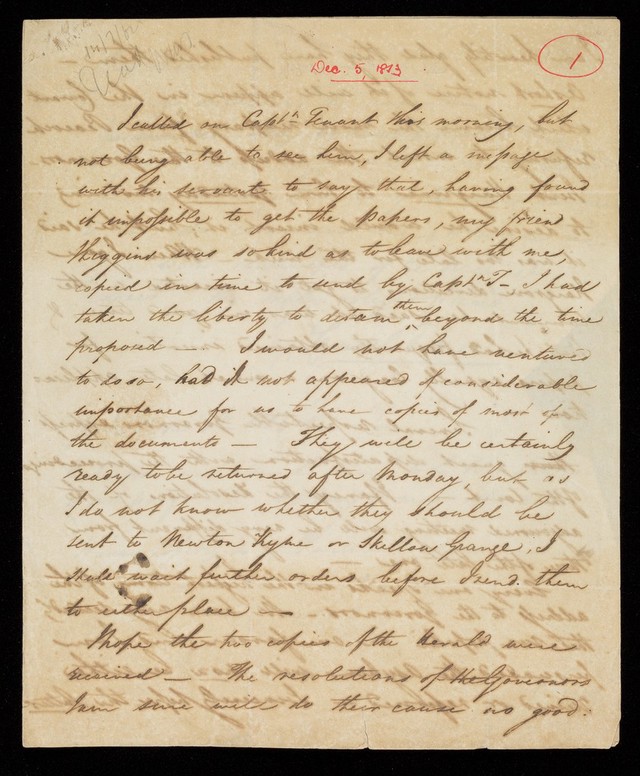 Dec. 5, 1813
1
I called on Captn. Tenant this morning, but
not being able to see him, I left a message
with his servants to say that, having found
it impossible to get the papers, my friend
Higgins was so kind as to leave with me,
copied in time to send by Captn. T— I had
taken the liberty to detain them beyond the time
proposed — I would not have ventured
to do so, had it not appeared of considerable
importance for us to have copies of most of
the documents — They will be certainly
ready to be returned after Monday, but as
I do not know whether they should be
sent to Newton Kyme or Skellow Grange, I
shall wait further orders before I send them
to either place —
I hope the two copies of the Herald were
received — The resolutions of the Governors
I am sure will do their cause no good.